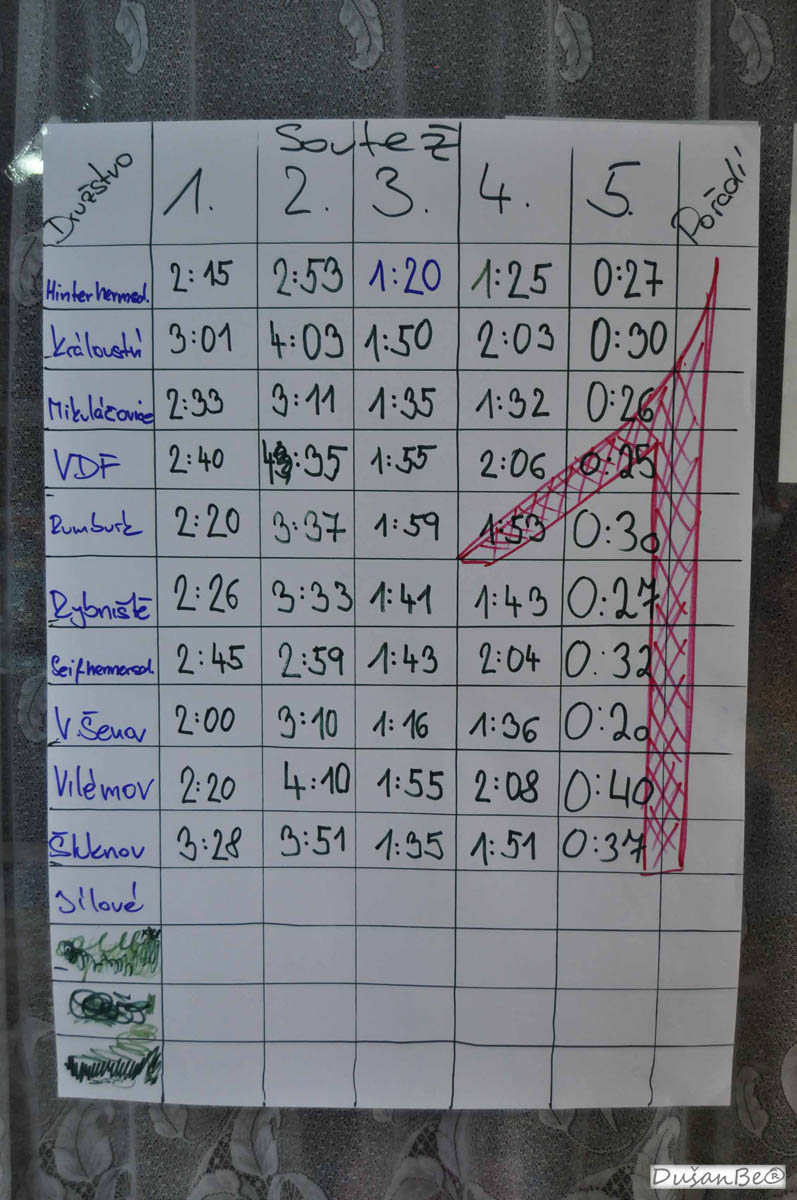 Soutěž
Družstvo 1. 2. 3. 4. 5. Pořadí
Hinterhermsd. 2:15 2:53 1:20 1:25 0:27
Království 3:01 4:03 1:50 2:03 0:30
Mikulášovice 2:33 3:11 1:35 1:32 0:26
VDF 2:40 :35 1:55 2:06 0:25
Rumburk 2:20 3:37 1:59 1:53 0:30
Rybniště 2:26 3:33 1:41 1:43 0:27
Seifhennersd. 2:45 2:59 1:43 2:04 0:32
V. Šenov 2:00 3:10 1:16 1:36 0:20
Vilémov 2:20 4:10 1:55 2:08 0:40
Šluknov 3:28 3:51 1:35 1:51 0:37
Jílové
DušanBe®